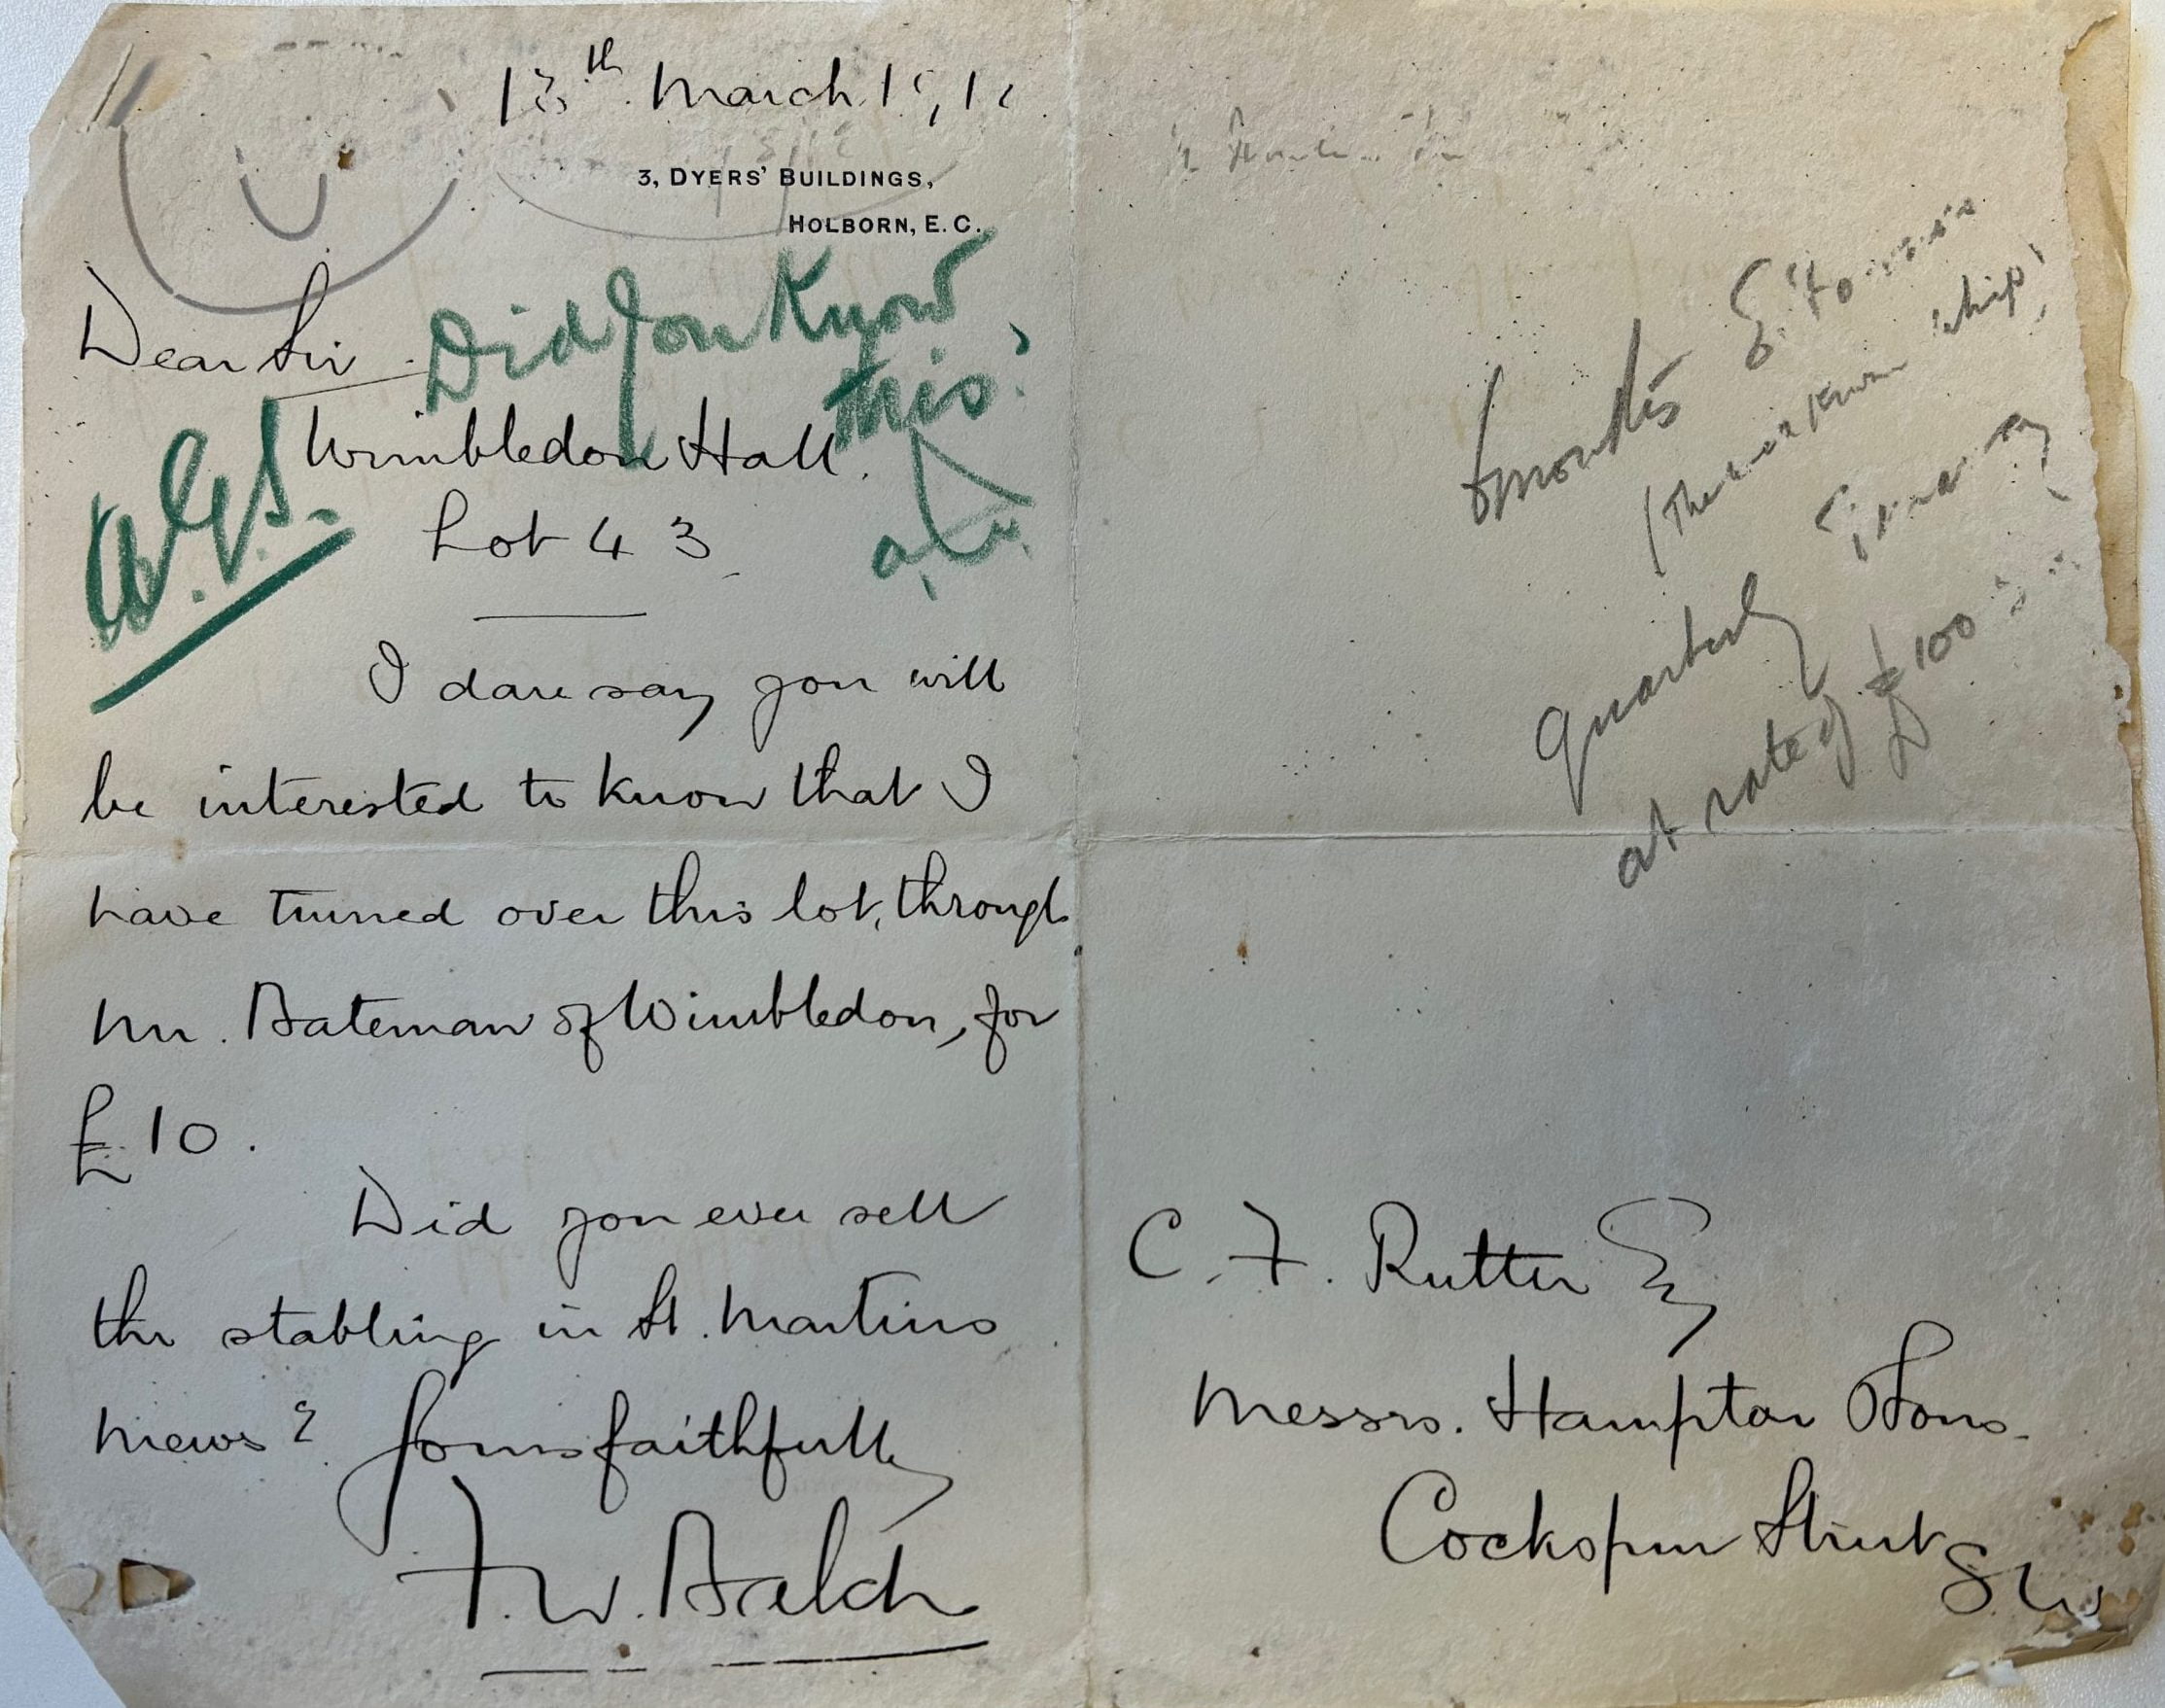 13th March 1912
3, DYERS' BUILDINGS,
HOLBORN, E.C.
Dear Sir
Did you know
this?
Wimbledon Hall.
Lot 43
I dare say you will
be interested to know that I
have turned over this lot, through
Mr. Bateman of Wimbledon, for
£10.
Did you ever sell
the stabling in St. Martins
Mews? Yours faithfully
F. W. Balch
6 months
Quarterly Tenancy
at rate of £100
C. F. Rutter Esq
Messrs. Hampton & Sons.
Cockspur Street
S.W.